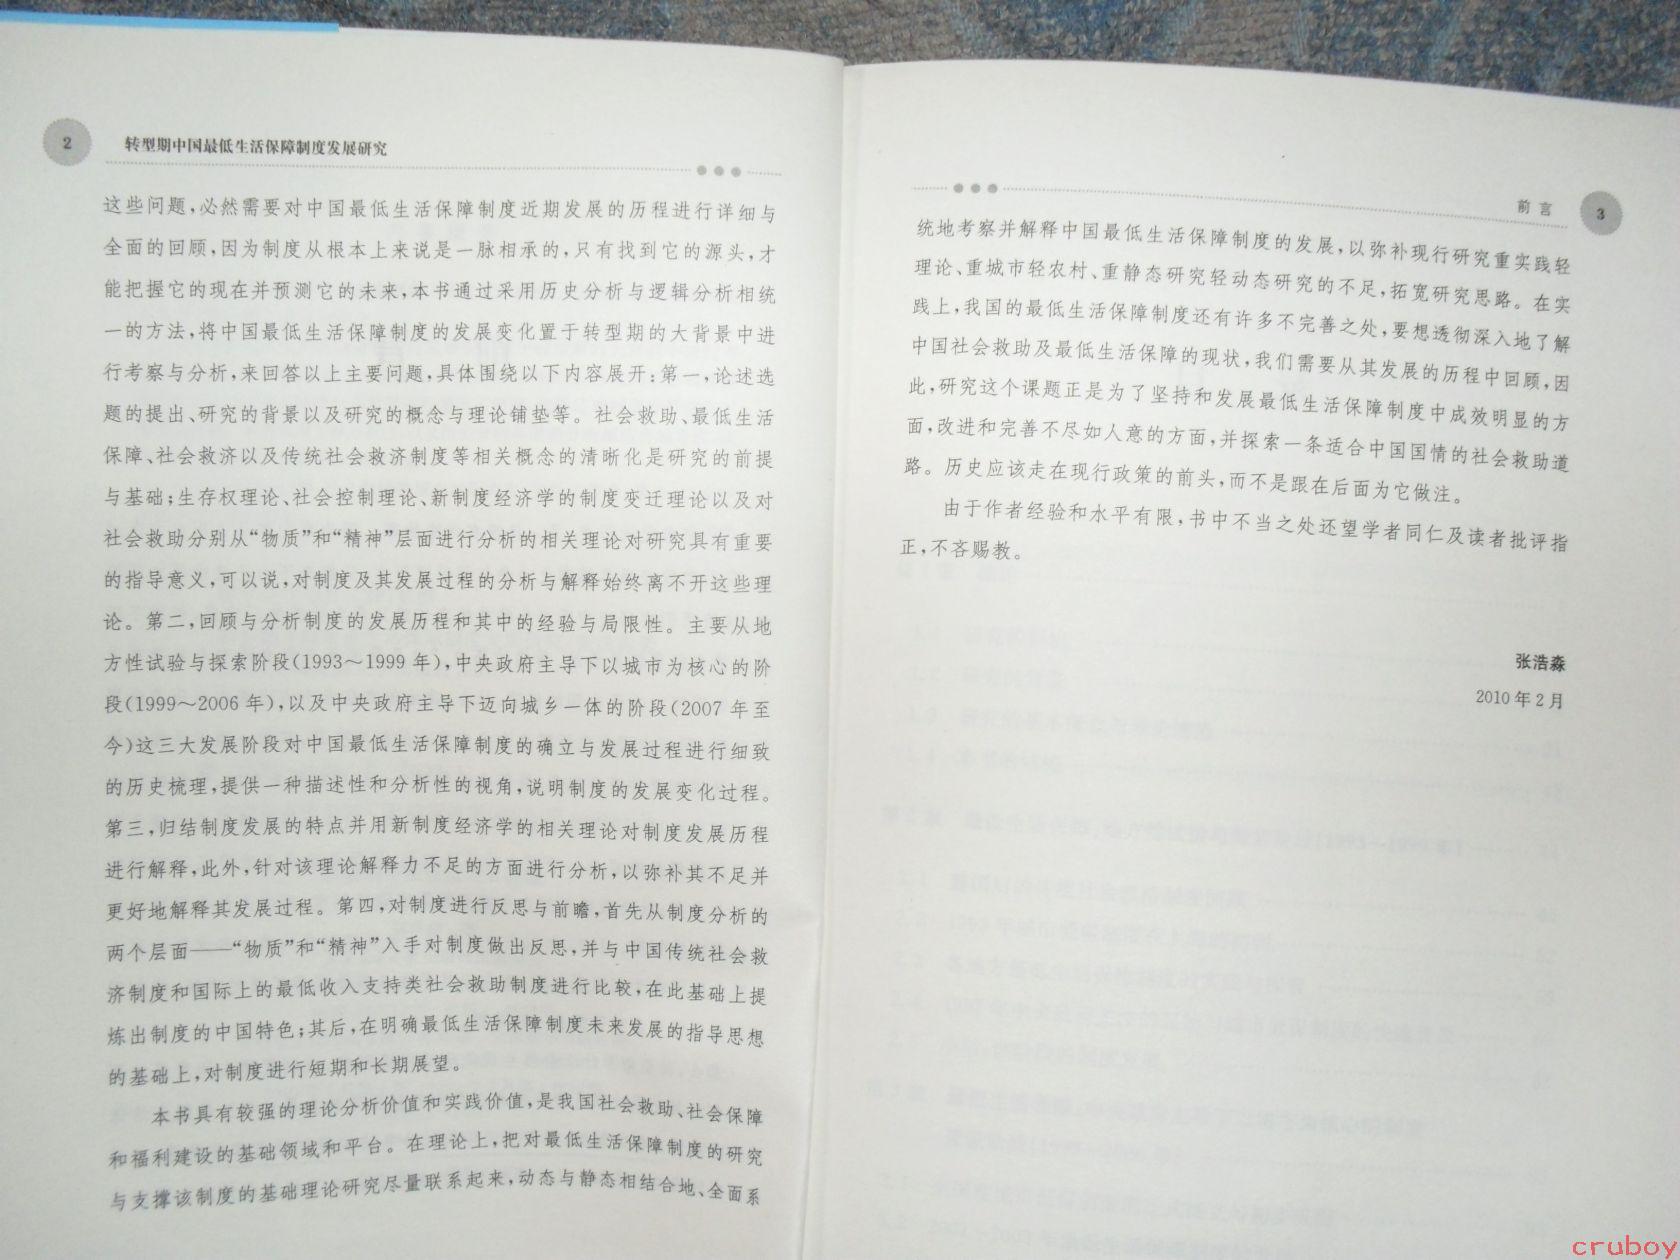 2
转型期中国最低生活保障制度发展研究
这些问题,必然需要对中国最低生活保障制度近期发展的历程进行详细与
全面的回顾,因为制度从根本上来说是一脉相承的,只有找到它的源头,才
能把握它的现在并预测它的未来,本书通过采用历史分析与逻辑分析相统
一的方法,将中国最低生活保障制度的发展变化置于转型期的大背景中进
行考察与分析,来回答以上主要问题,具体围绕以下内容展开:第一,论述选
题的提出、研究的背景以及研究的概念与理论铺垫等。社会救助、最低生活
保障、社会救济以及传统社会救济制度等相关概念的清晰化是研究的前提
与基础;生存权理论、社会控制理论、新制度经济学的制度变迁理论以及对
社会救助分别从“物质”和“精神”层面进行分析的相关理论对研究具有重要
的指导意义,可以说,对制度及其发展过程的分析与解释始终离不开这些理
论。第二,回顾与分析制度的发展历程和其中的经验与局限性。主要从地
方性试验与探索阶段(1993～1999年),中央政府主导下以城市为核心的阶
段(1999～2006年),以及中央政府主导下迈向城乡一体的阶段(2007年至
今)这三大发展阶段对中国最低生活保障制度的确立与发展过程进行细致
的历史梳理,提供一种描述性和分析性的视角,说明制度的发展变化过程。
第三,归结制度发展的特点并用新制度经济学的相关理论对制度发展历程
进行解释,此外,针对该理论解释力不足的方面进行分析,以弥补其不足并
更好地解释其发展过程。第四,对制度进行反思与前瞻,首先从制度分析的
两个层面——“物质”和“精神”入手对制度做出反思,并与中国传统社会救
济制度和国际上的最低收入支持类社会救助制度进行比较,在此基础上提
炼出制度的中国特色;其后,在明确最低生活保障制度未来发展的指导思想
的基础上,对制度进行短期和长期展望。
本书具有较强的理论分析价值和实践价值,是我国社会救助、社会保障
和福利建设的基础领域和平台。在理论上,把对最低生活保障制度的研究
与支撑该制度的基础理论研究尽量联系起来,动态与静态相结合地、全面系
前言
3
统地考察并解释中国最低生活保障制度的发展,以弥补现行研究重实践轻
理论、重城市轻农村、重静态研究轻动态研究的不足,拓宽研究思路。在实
践上,我国的最低生活保障制度还有许多不完善之处,要想透彻深入地了解
中国社会救助及最低生活保障的现状,我们需要从其发展的历程中回顾,因
此,研究这个课题正是为了坚持和发展最低生活保障制度中成效明显的方
面,改进和完善不尽如人意的方面,并探索一条适合中国国情的社会救助道
路。历史应该走在现行政策的前头,而不是跟在后面为它做注。
由于作者经验和水平有限,书中不当之处还望学者同仁及读者批评指
正,不吝赐教。
张浩淼
2010年2月
cruboy